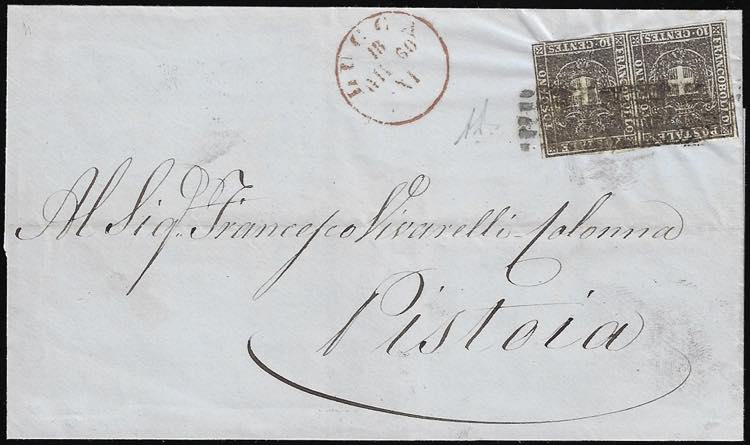 LUCCA
18
60
XI
10 CENTES
10 CENTES
FRANCOBOLLO
POSTALE
Al Sig.r Francesco Vivarelli-Colonna
Pistoia